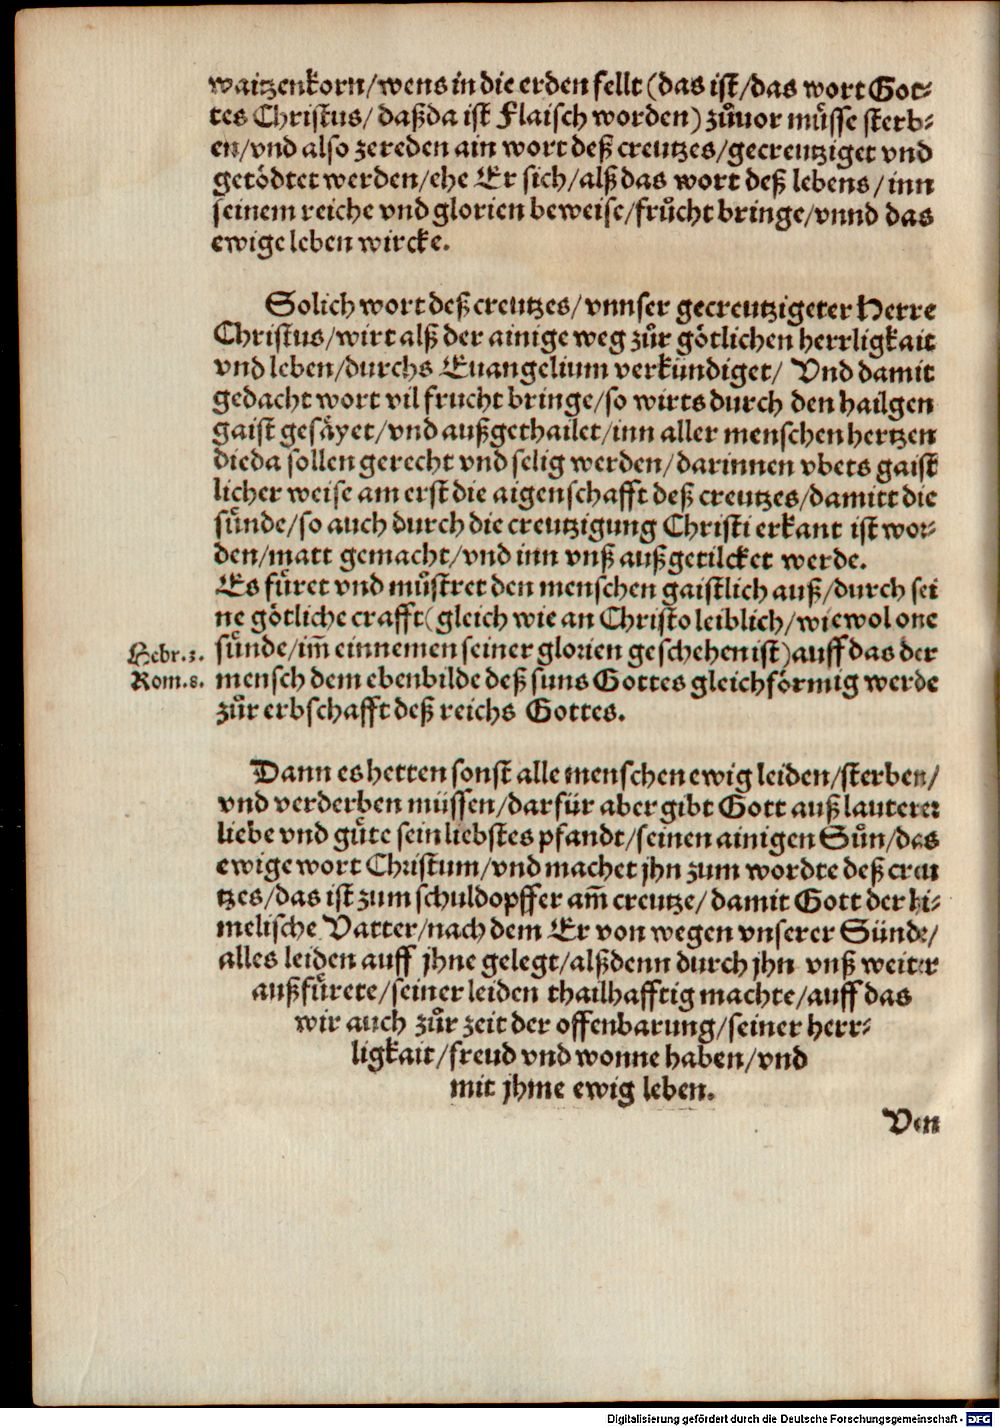 waitzenkorn/wens in die erden fellt (das ist/das wort Got-
tes Christus/ daßda ist Flaisch worden) zůuor müsse sterb-
en/vnd also zereden ain wort deß creutzes/gecreutziget vnd
getödtet werden/ehe Er sich/alß das wort deß lebens/inn
seinem reiche vnd glorien beweise/frücht bringe/vnnd das
ewige leben wircke.
Solich wort deß creutzes/vnnser gecreutzigeter Herre
Christus/wirt alß der ainige weg zůr götlichen herrligkait
vnd leben/durchs Euangelium verkündiget/ Vnd damit
gedacht wort vil frucht bringe/so wirts durch den hailgen
gaist gesäyet/vnd außgethailet/inn aller menschen hertzen
dieda sollen gerecht vnd selig werden/darinnen vbets gaist
licher weise am erst die aigenschafft deß creutzes/damitt die
sünde/so auch durch die creutzigung Christi erkant ist wor-
den/matt gemacht/vnd inn vnß außgetilcket werde.
Es füret vnd můstret den menschen gaistlich auß/durch sei
ne götliche crafft (gleich wie an Christo leiblich/wiewol one
Hebr.3. sünde/im̃ einnemen seiner glorien geschehen ist) auff das der
Rom.8. mensch dem ebenbilde deß suns Gottes gleichförmig werde
zůr erbschafft deß reichs Gottes.
Dann es hetten sonst alle menschen ewig leiden/sterben/
vnd verderben müssen/darfür aber gibt Gott auß lauterer
liebe vnd güte sein liebstes pfandt/seinen ainigen Sůn/das
ewige wort Christum/vnd machet jhn zum wordte deß creu
tzes/das ist zum schuldopffer am̃ creutze/ damit Gott der hi-
melische Vatter/nach dem Er von wegen vnserer Sünde/
alles leiden auff jhne gelegt/alßdenn durch jhn vnß weiter
außfürete/seiner leiden thailhafftig machte/auff das
wir auch zůr zeit der offenbarung/seiner herr-
ligkait/freud vnd wonne haben/vnd
mit jhme ewig leben.
Von
Digitalisierung gefördert durch die Deutsche Forschungsgemeinschaft - DFG